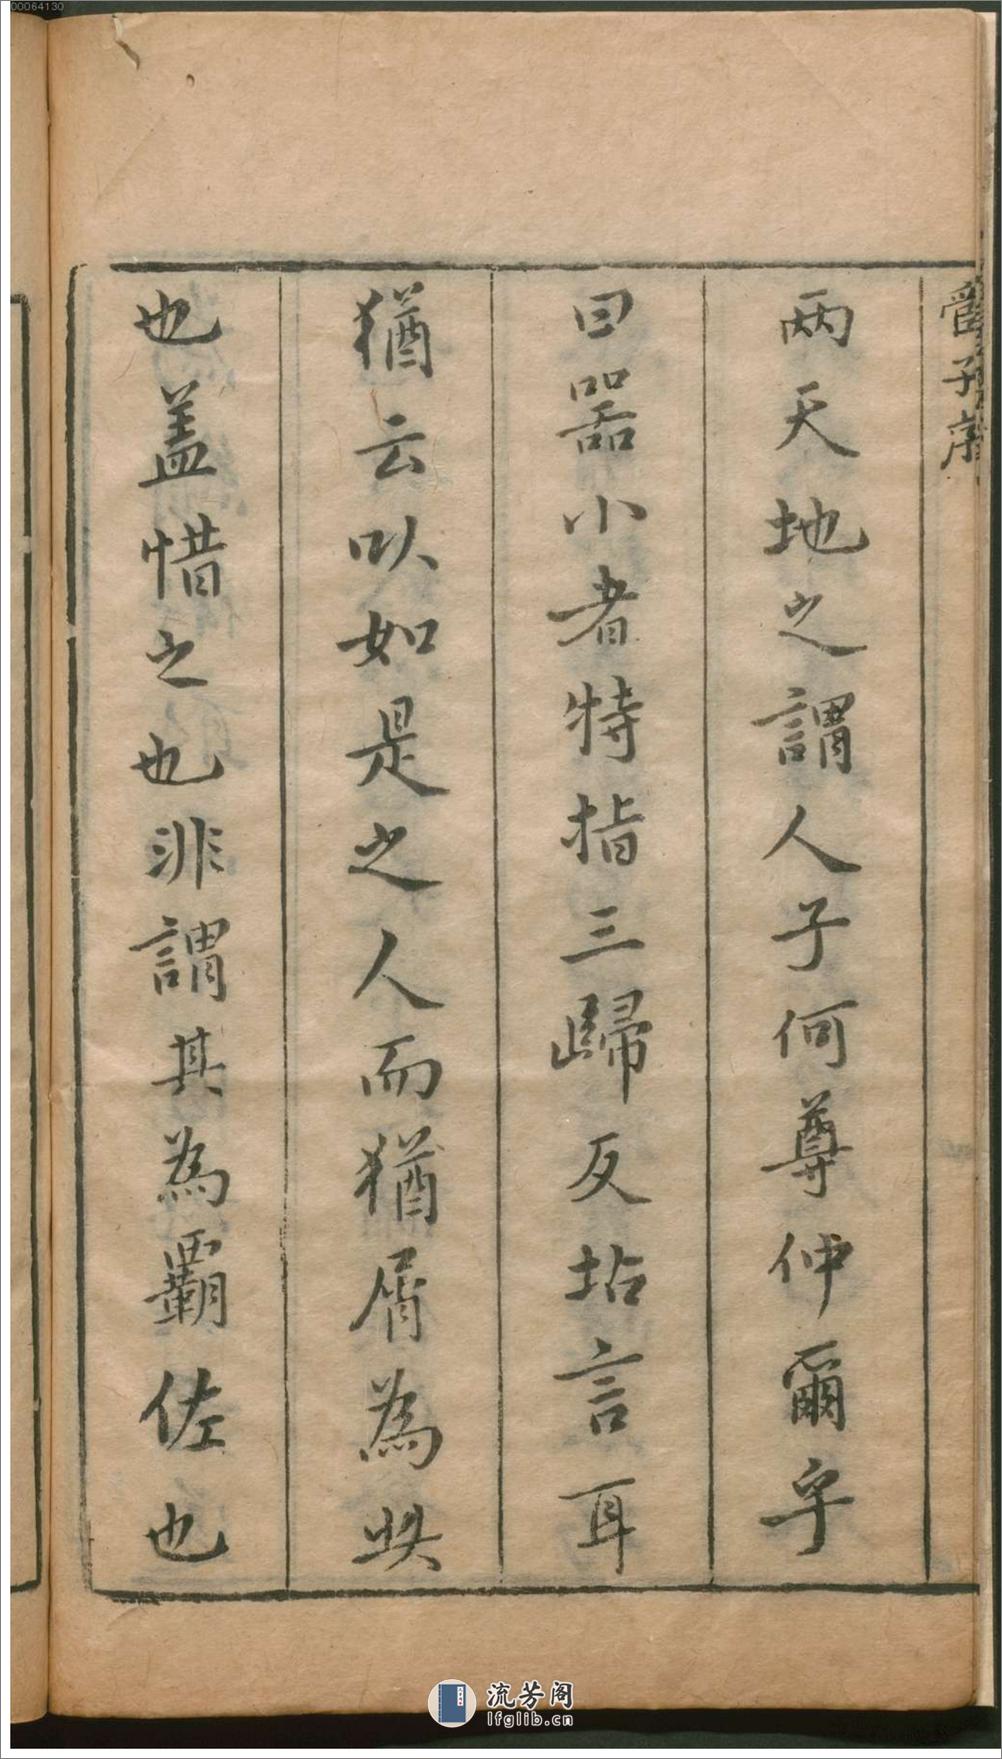 管子序
两天地之謂人子何尊仲爾乎
曰器小者特指三歸反坫言耳
猶云以如是之人而猶屑為
也蓋惜之也非謂其為霸佐也
00064130
流芳阁
lfglib.cn